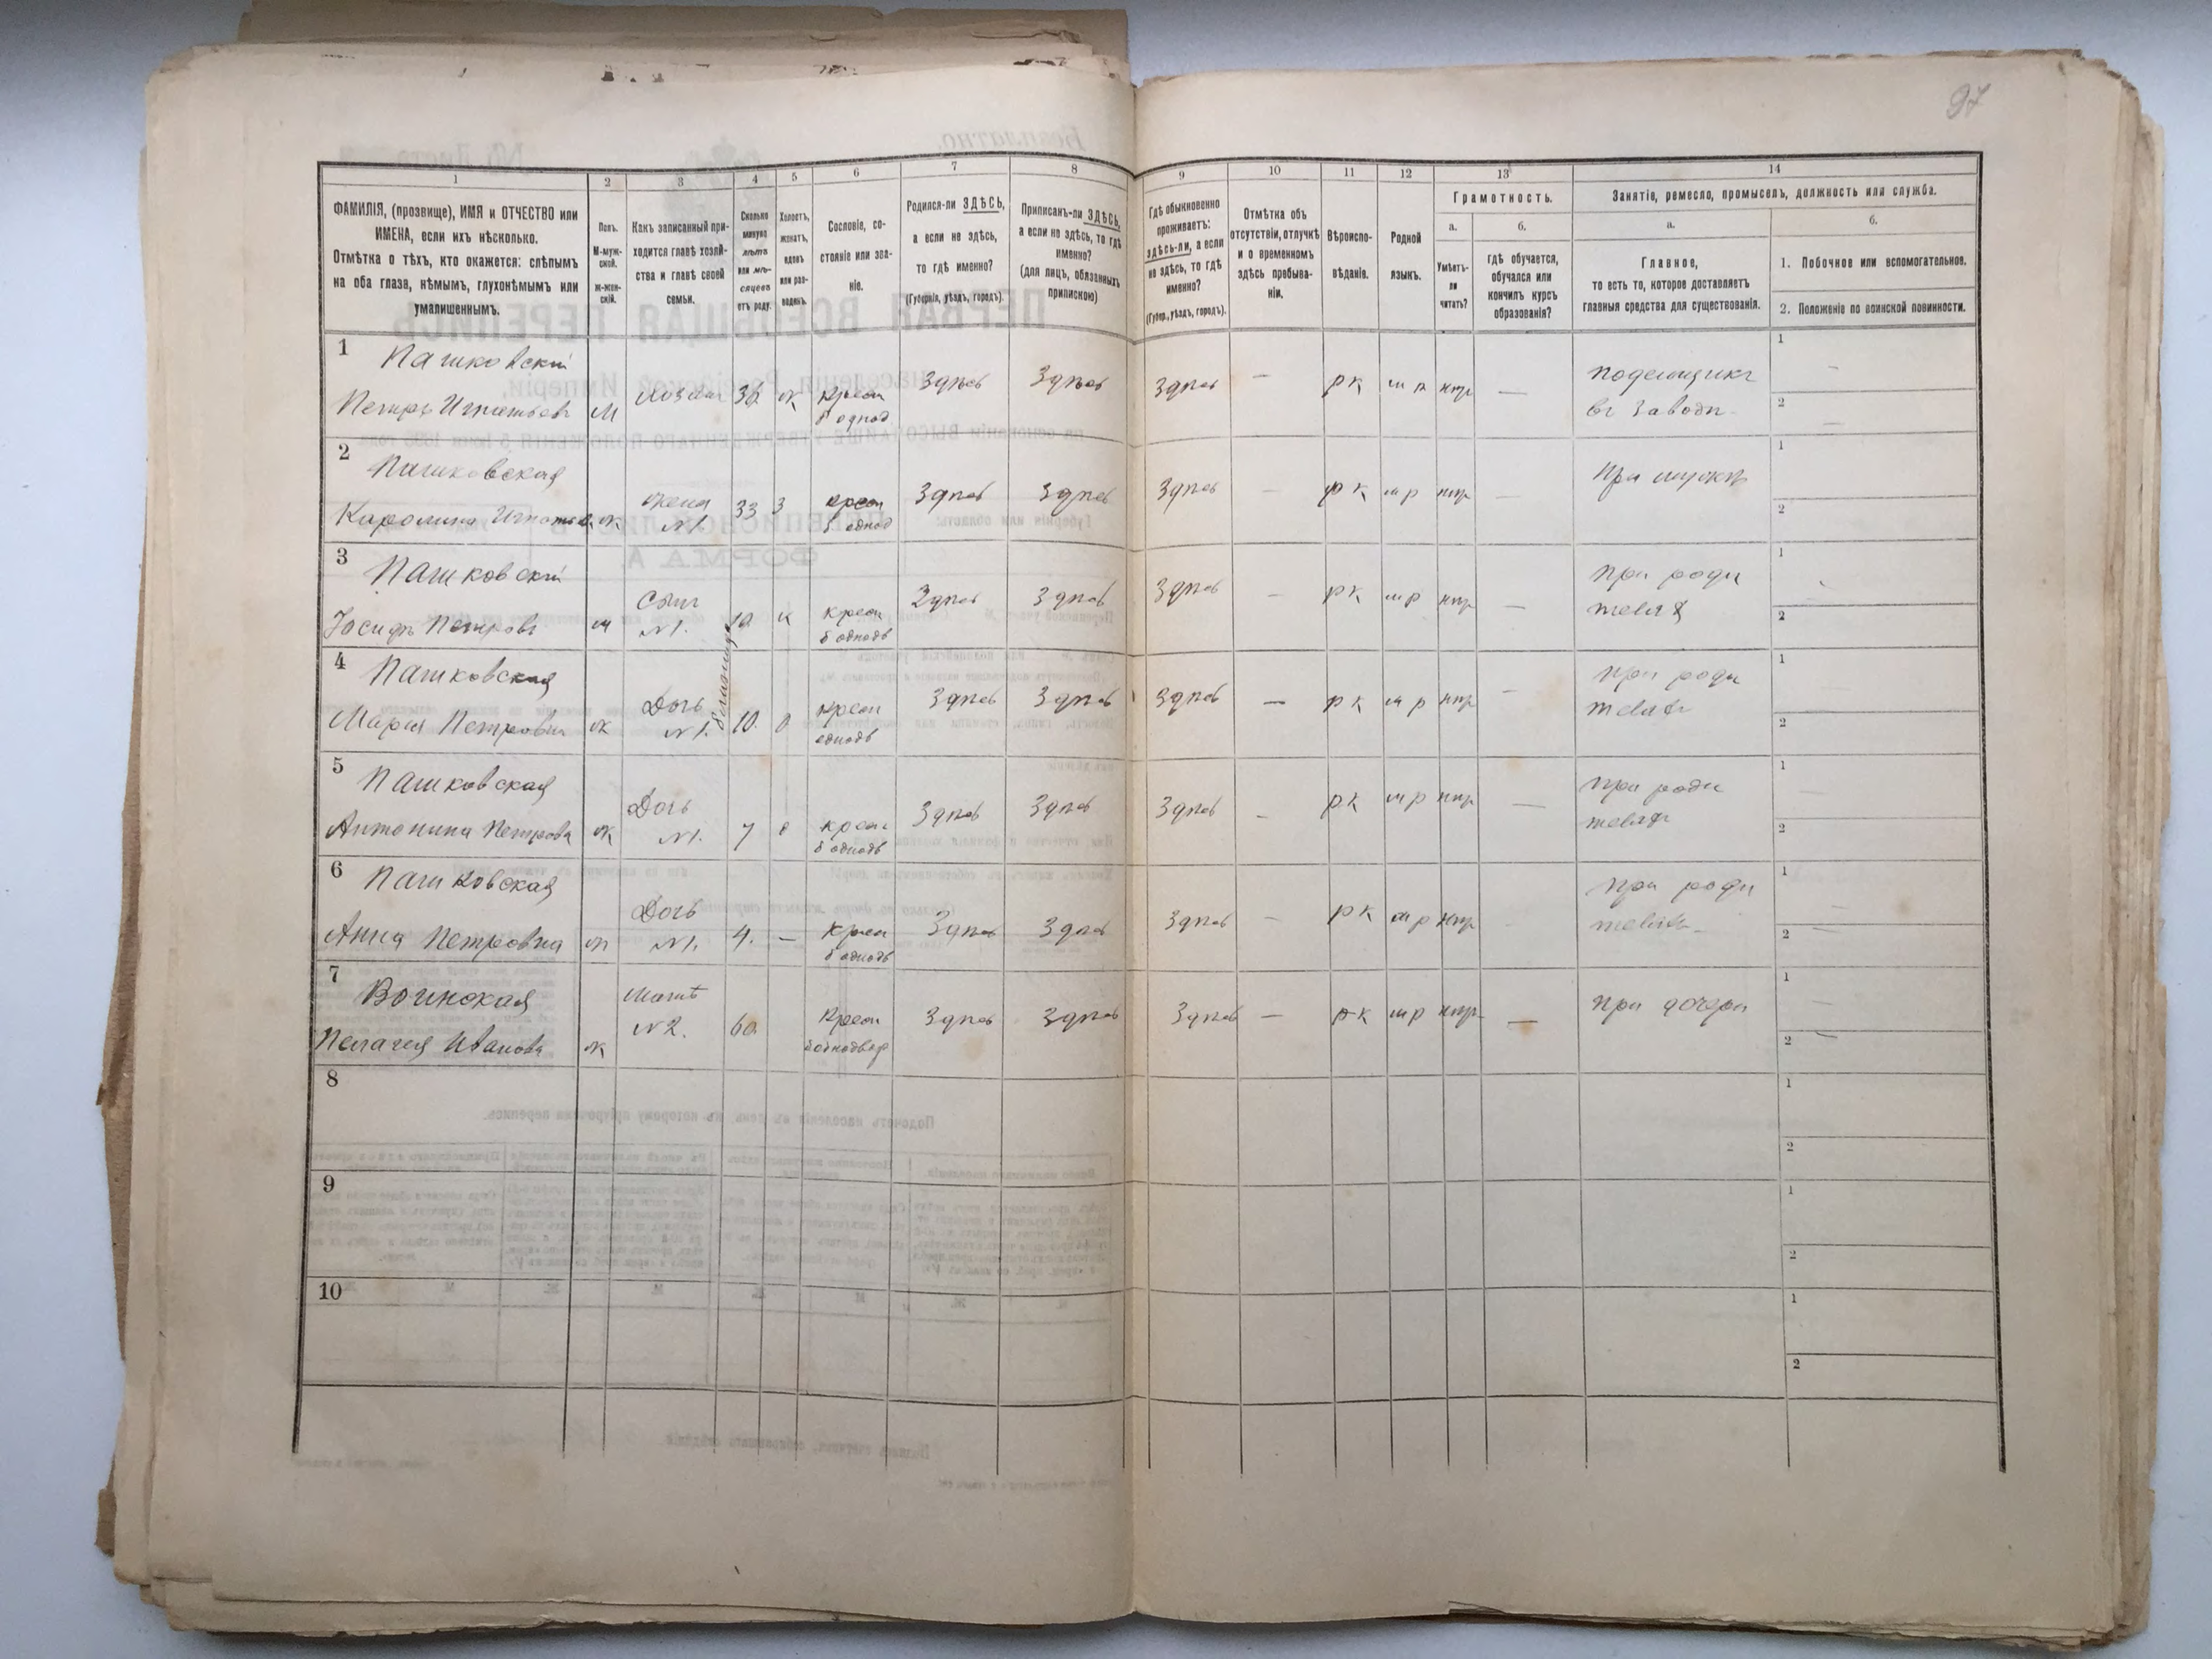 97
1 2 3 4 5 6 7 8 9 10 11 12 13 14
ФАМИЛІЯ, (прозвище), ИМЯ и ОТЧЕСТВО или
ИМЕНА, если ихъ нѣсколько.
Отмѣтка о тѣхъ, кто окажется: слѣпымъ
на оба глаза, нѣмымъ, глухонѣмымъ или
умалишеннымъ.
Полъ.
М-муж-
ской.
ж-жен-
скій.
Какъ записанный при-
ходится главѣ хозяй-
ства и главѣ своей
семьи.
Сколько
минуло
лѣтъ
или мѣ-
сяцевъ
отъ роду.
Холостъ,
женатъ,
вдовъ
или раз-
веденъ.
Сословіе, со-
стояніе или зва-
ніе.
Родился-ли ЗДѢСЬ,
а если не здѣсь,
то гдѣ именно?
(Губернія, уѣздъ, городъ).
Приписанъ-ли ЗДѢСЬ,
а если не здѣсь, то гдѣ
именно?
(для лицъ, обязанныхъ
припискою)
Гдѣ обыкновенно
проживаетъ:
здѣсь-ли, а если
не здѣсь, то гдѣ
именно?
(Губер., уѣздъ, городъ).
Отмѣтка объ
отсутствіи, отлучкѣ
и о временномъ
здѣсь пребыва-
ніи.
Вѣроиспо-
вѣданіе.
Родной
языкъ.
Грамотность.
а.
Умѣетъ-
ли
читать?
б.
гдѣ обучается,
обучался или
кончилъ курсъ
образованія?
Занятіе, ремесло, промыселъ, должность или служба.
а.
Главное,
то есть то, которое доставляетъ
главныя средства для существованія.
б.
1. Побочное или вспомогательное.
2. Положеніе по воинской повинности.
1 Пашковскій
Петръ Игнатьевъ М Хозяин 38 ж крест б однод Здѣсь Здѣсь Здѣсь — рк нтр — поденщикъ
въ Заводѣ
1 —
2 —
2 Пашковская
Каролина ж жена №1. 33 З крест б однод Здѣсь Здѣсь Здѣсь — рк нтр — При мужѣ
1
2
3 Пашковскій
Іосифъ Петровъ м Сынъ №1. 10. х крест б однодв Здѣсь Здѣсь Здѣсь — рк нтр — при роди
теля
1
2
близнецы
4 Пашковская
Марія Петровна ж Дочь №1. 10. крест однодв Здѣсь Здѣсь Здѣсь — рк нтр — при роди
1
2
5 Пашковская
Антонина Петрова ж Дочь №1. 7 крест б однодв Здѣсь Здѣсь Здѣсь — рк нтр — при роди
1
2
6 Пашковская
Анна Петровна ж Дочь №1. 4. — крест б однодв Здѣсь Здѣсь Здѣсь — рк нтр при роди
1
2
7 Воинская
Пелагея Иванова ж Мать №2. 60. крест б однодвор Здѣсь Здѣсь Здѣсь — рк нтр — при дочери
1
2
8
1
2
9
1
2
10
1
2